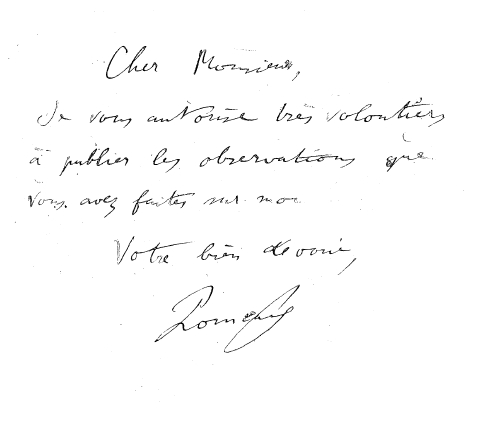 Cher Monsieur,
Je vous autorise très volontiers
à publier les observations que
vous avez faites sur moi
Votre bien dévoué,